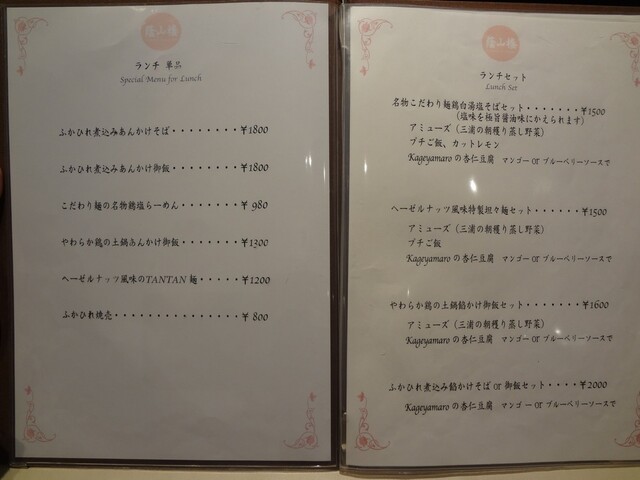 蔭山樓
ランチ 単品
Special Menu for Lunch
ふかひれ煮込みあんかけそば・・・・・・・・・¥1800
ふかひれ煮込みあんかけ御飯・・・・・・・・・¥1800
こだわり麺の名物鶏塩らーめん・・・・・・・・¥ 980
やわらか鶏の土鍋あんかけ御飯・・・・・・・・¥1300
ヘーゼルナッツ風味のTANTAN 麺・・・・・¥1200
ふかひれ焼売・・・・・・・・・・・・・・・・¥ 800
蔭山樓
ランチセット
Lunch Set
名物こだわり麺鶏白湯塩そばセット・・・・・・・¥1500
(塩味を極旨醤油味にかえられます)
アミューズ(三浦の朝穫り蒸し野菜)
プチご飯、カットレモン
Kageyamaro の杏仁豆腐 マンゴー or ブルーベリーソースで
ヘーゼルナッツ風味特製坦々麺セット・・・・・・¥1500
アミューズ(三浦の朝穫り蒸し野菜)
プチご飯
Kageyamaro の杏仁豆腐 マンゴー or ブルーベリーソースで
やわらか鶏の土鍋餡かけ御飯セット・・・・・・・¥1600
アミューズ(三浦の朝穫り蒸し野菜)
Kageyamaro の杏仁豆腐 マンゴー or ブルーベリーソースで
ふかひれ煮込み餡かけそば or 御飯セット・・・・¥2000
Kageyamaro の杏仁豆腐 マンゴー or ブルーベリーソースで